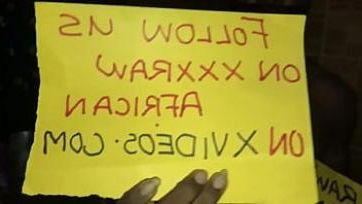 FOLLOW US
ON XXXRAW
AFRICAN
ON XVIDEOS.COM
RAW